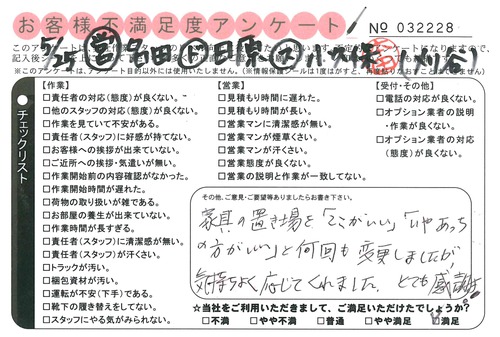 お客様不満足度アンケート
No 032228
5/24 営 名田 ド 日東 (刈谷)
【作業】
□責任者の対応(態度)が良くない。
□他のスタッフの対応(態度)が良くない。
□作業を見ていて不安がある。
□責任者(スタッフ)に好感が持てない。
□お客様への挨拶が出来ていない。
□ご近所への挨拶・気遣いが無い。
□作業開始前の内容確認がなかった。
□作業開始時間が遅れた。
□荷物の取り扱いが雑である。
□お部屋の養生が出来ていない。
□作業時間が長すぎる。
□責任者(スタッフ)に清潔感が無い。
□責任者(スタッフ)が汗くさい。
□トラックが汚い。
□梱包資材が汚い。
□運転が不安(下手)である。
□靴下の履き替えをしてない。
□スタッフにやる気がみられない。
【営業】
□見積もり時間に遅れた。
□見積もり時間が長い。
□営業マンに清潔感が無い。
□営業マンが煙草くさい。
□営業マンが汗くさい。
□営業態度が良くない。
□営業の説明と作業が一致してない。
【受付・その他】
□電話の対応が良くない。
□オプション業者の説明
・作業が良くない。
□オプション業者の対応
(態度)が良くない。
チェックリスト
その他、ご意見・ご要望等ありましたらお書き下さい。
家具の置き場を「ここがいい」「いやあっち
の方がいい」と何回も変更しましたが、
気持ちよく応じてくれました。とても感謝!
☆当社をご利用いただきまして、ご満足いただけたでしょうか?
□不満 □やや不満 □普通 □やや満足 □満足